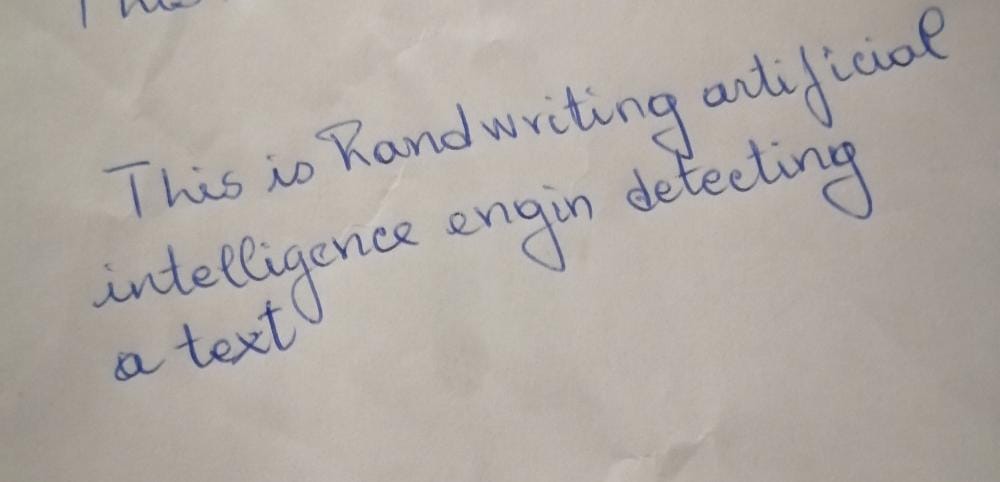 This is handwriting artificial
intelligence engin detecting
a text